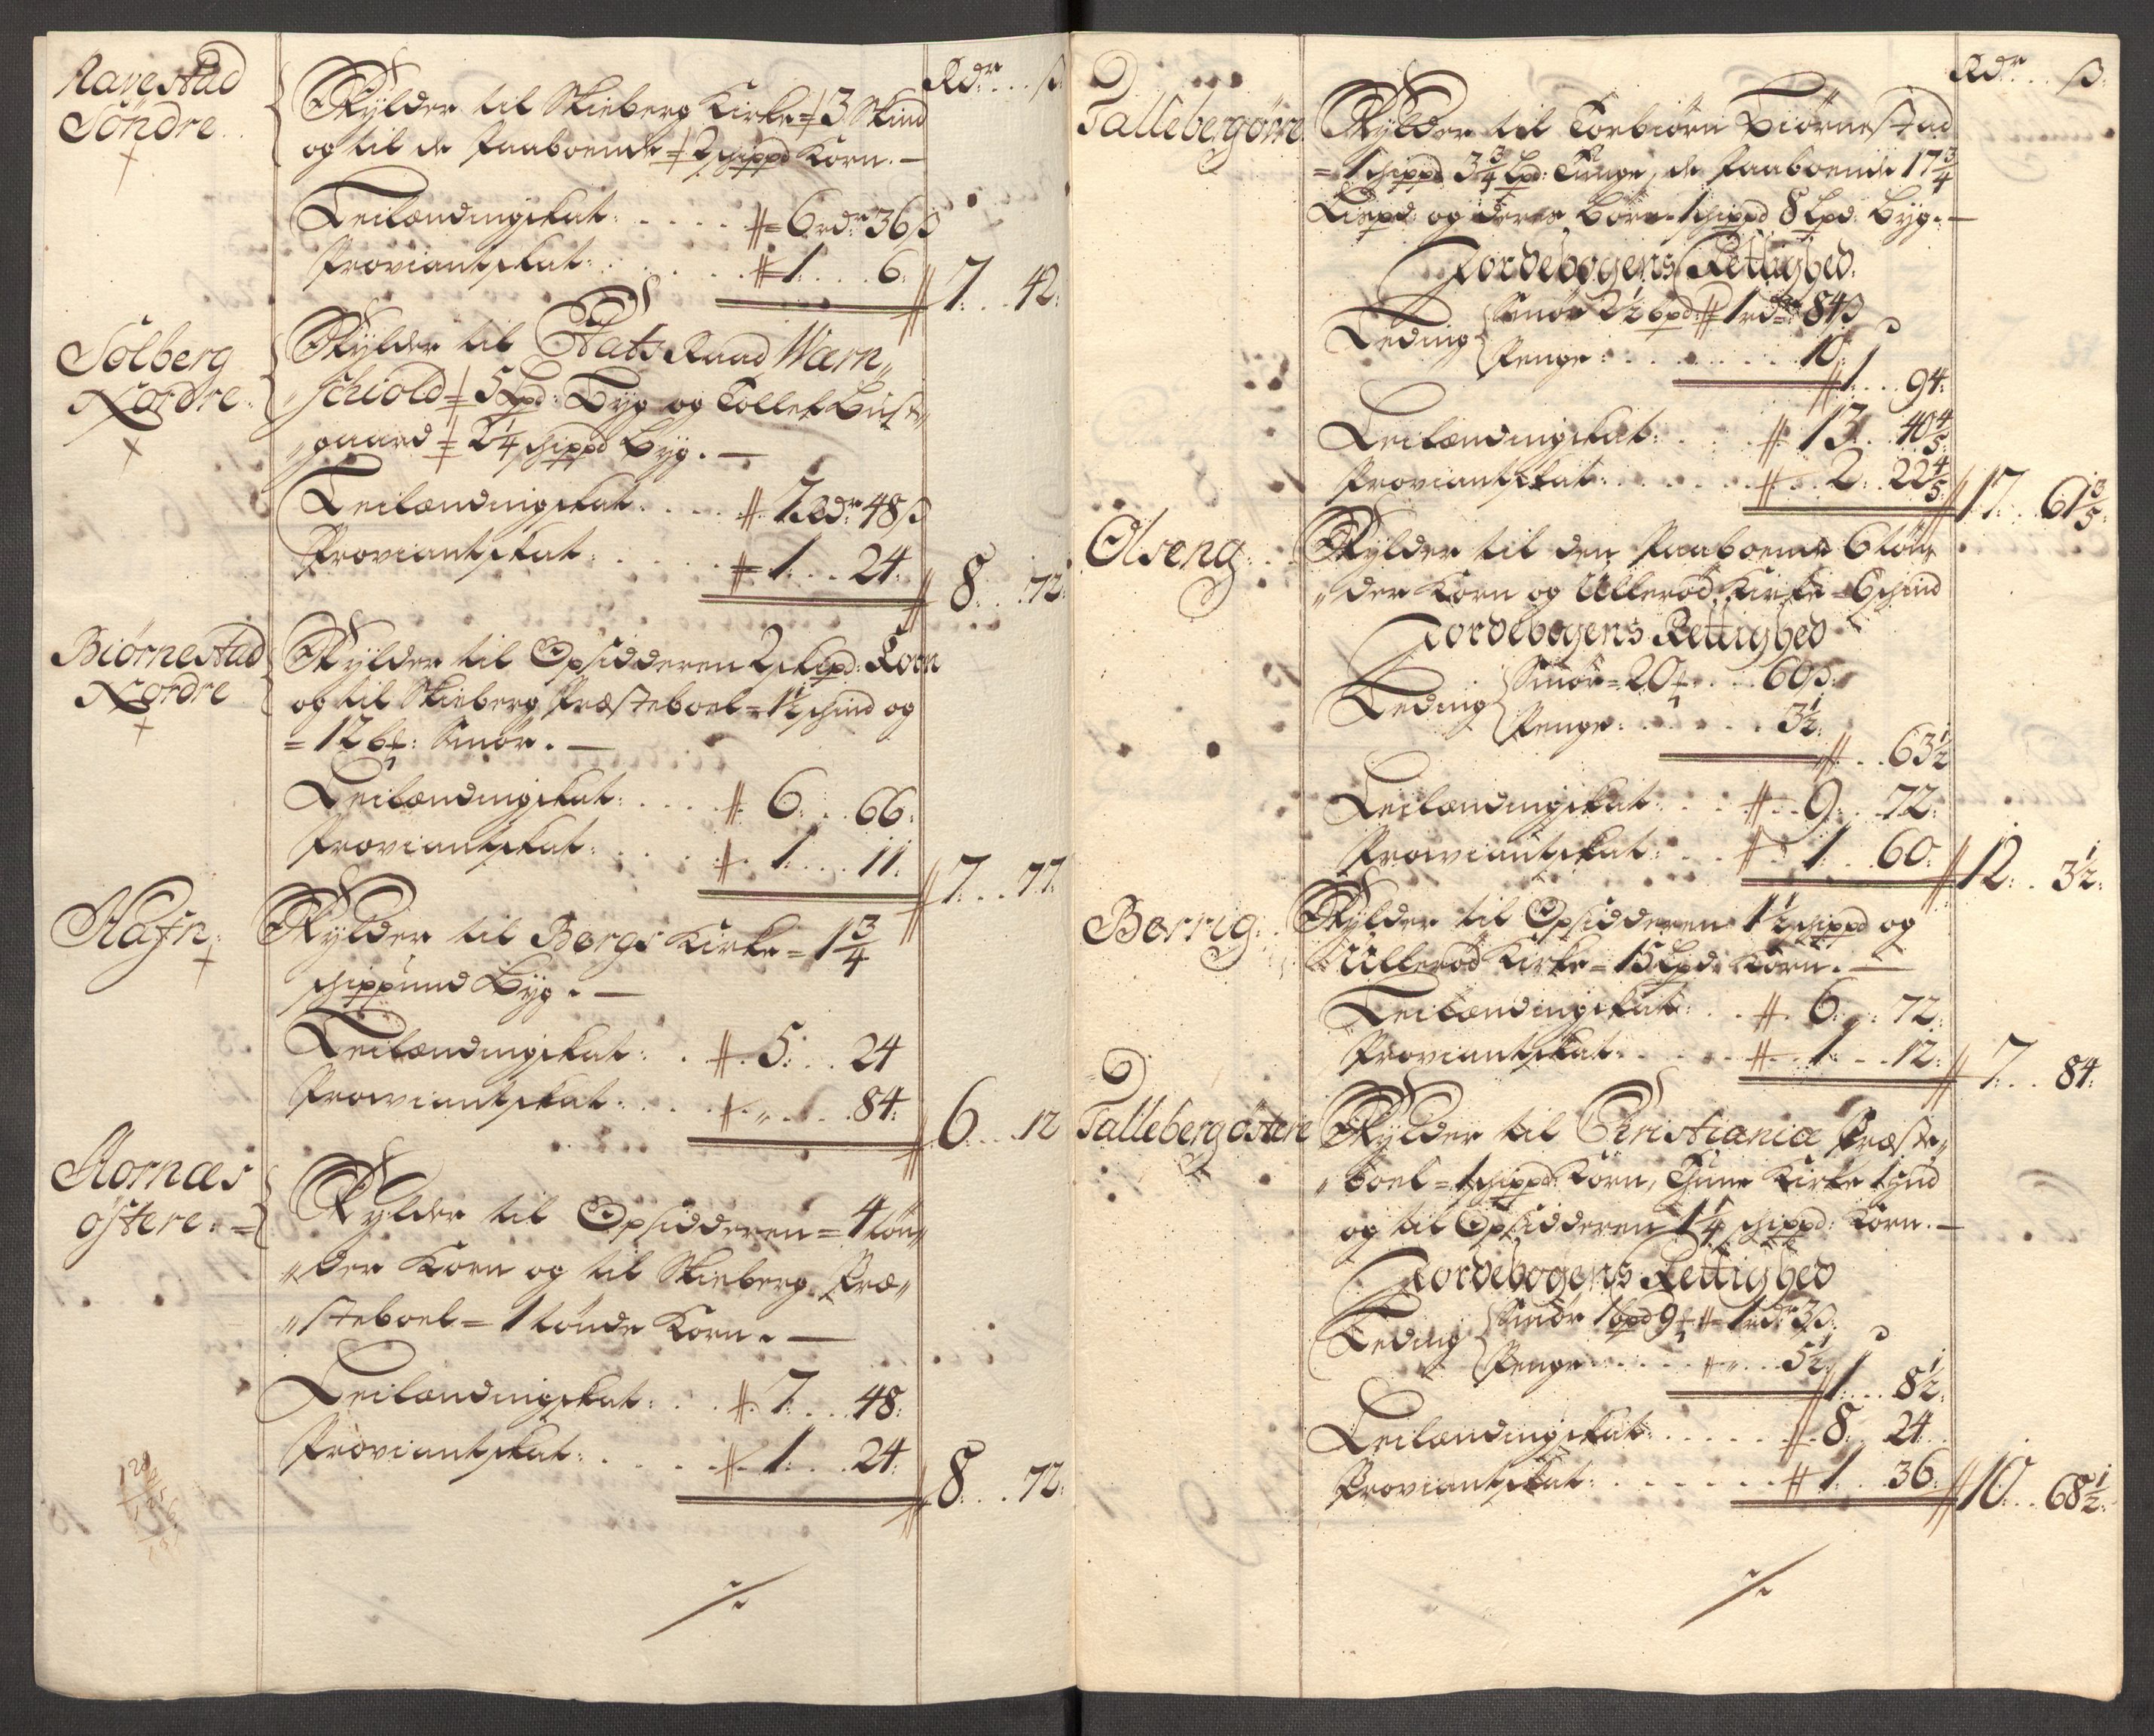 Rdr. ß
Ravestad
Söndre
Skylder til Skieberg Kirke = 3 Skind
og til de Paaboende = 2 schippd Korn. —
Leilændingskat: 6 rdr 36 ß
Proviantskat: 1 . . 6 :
7 . . 42 :
Solberg
Nordre
Skylder til Etats Raad Wærn„
„schiold = 5 Lpd: Byg og Tollef Bust„
„gaard = 2¼ schippd Byg. —
Leilændingskat. 7 Rdr 48 ß
Proviantskat: 1 . . 24 :
8 . . 72 :
Biörnestad
Nordre
Skylder til Opsidderen 2 skipd: Korn
og til Skieberg Præsteboel = 1½ schind og
= 12 b℔: Smör. —
Leilændingskat: 6 : . 66 :
Proviantskat: 1 . . 11 :
7 . . 77
Hafn :
Skylder til Bergs Kirke = 1¾
schippund Byg. —
Leilændingskat: 5 : . 24
Proviantskat: „ . . 84 :
6 . . 12
Hornæs
östere : =
Skylder til Opsidderen = 4 tön„
„der Korn og til Skieberg Præ„
„steboel = 1 tönde Korn. —
Leilændingskat: 7 . . 48 :
Proviantskat: 1 . . 24 :
8 . . 72 :
Rdr. . ß :
Tallebergörre
Skylder til Torbiörn Biörnestad
= 1 schippd 3¾ Lpd: Tunge, de Paaboende 17¾
Lispd: og deres Börn 1 schippd 8 Lpd: Byg. —
Jordebogens Rettighed:
Leding Smör 2½ bpd: 1 rdr 84 ß
Penge : 10 :
1 . . 94 :
Leilændingskat: 13 . . 40⅘
Proviantskat: 2 . . 22⅘
17 . . 61⅗
Olseng
Skylder til den Paaboende 6 tön„
„der Korn og Ulleröd Kirke = 6 schind
Jordebogens Rettighed
Leding Smör = 20 ℔ . . 60 ß :
Penge : 3½ :
63½
Leilændingskat: 9 : . 72 :
Proviantskat: 1 . . 60 :
12 : . 3½ :
Borrig :
Skylder til Opsidderen 1½ schippd og
Ulleröd Kirke = 15 Lpd: Korn. —
Leilændingskat: 6 : . 72 :
Proviantskat: 1 . . 12 :
7 : . . 84 :
Talleberg östere
Skylder til Christiania Præste„
„boel = 1 schippd: Korn, Thune Kirke 1 hud
og til Opsidderen 1¼ schippd: Korn. —
Jordebogens Rettighed
Leding Smör 1 bpd 9 ℔ = 1 rdr 3 ß :
Penge 5½
1 . . 8½ :
Leilændingskat: 8 . . 24
Proviantskat: 1 . . 36 :
10 . . 68½ :